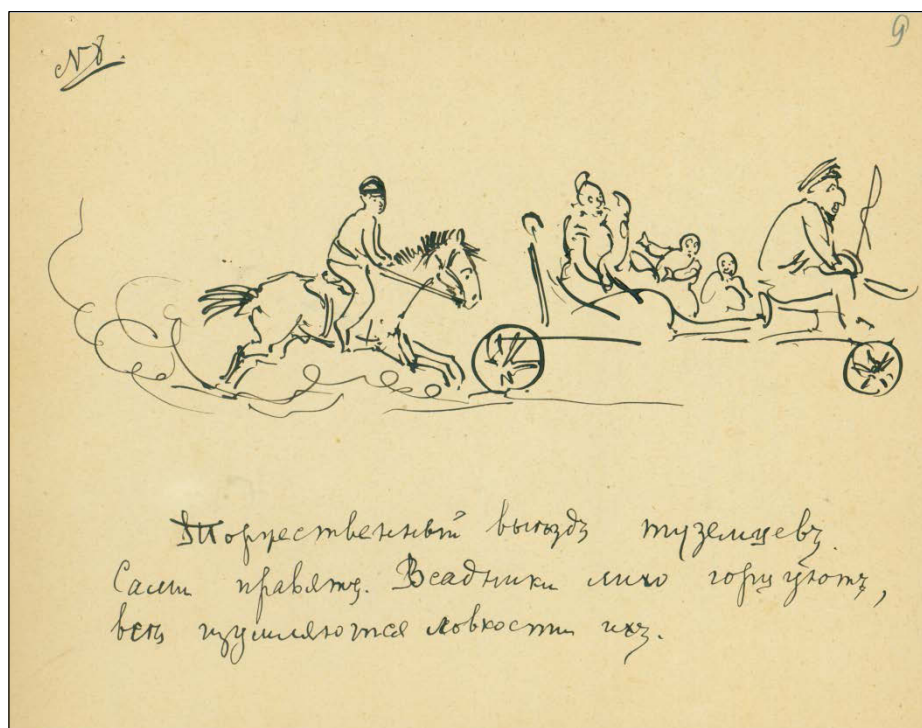 № 8.
9
Торжественный выѣздъ туземцевъ.
Сами правятъ. Всадники лихо горцуютъ,
всѣ изумляются ловкости ихъ.